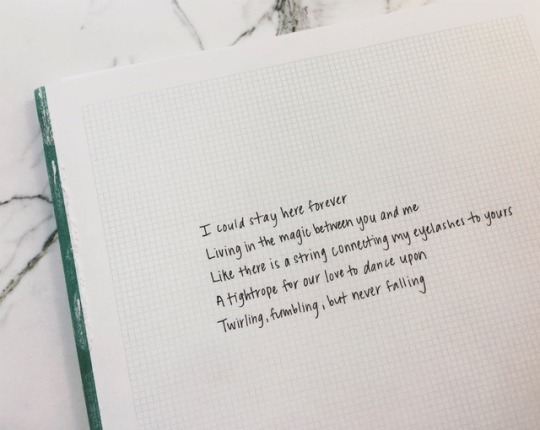 I could stay here forever
Living in the magic between you and me
Like there is a string connecting my eyelashes to yours
A tightrope for our love to dance upon
Twirling, fumbling, but never falling